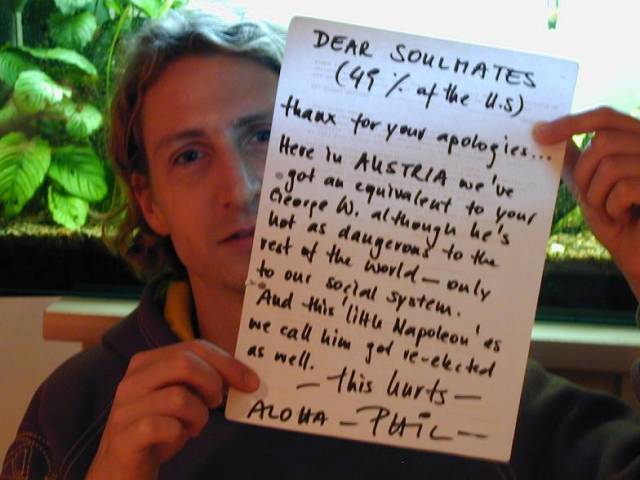 DEAR SOULMATES
(49 % of the U.S)
thanx for your apologies...
Here in AUSTRIA we've
got an equivalent to your
George W. although he's
not as dangerous to the
rest of the world — only
to our social system.
And this 'little Napoleon' as
we call him got re-elected
as well.
— this hurts —
ALOHA — PHIL —